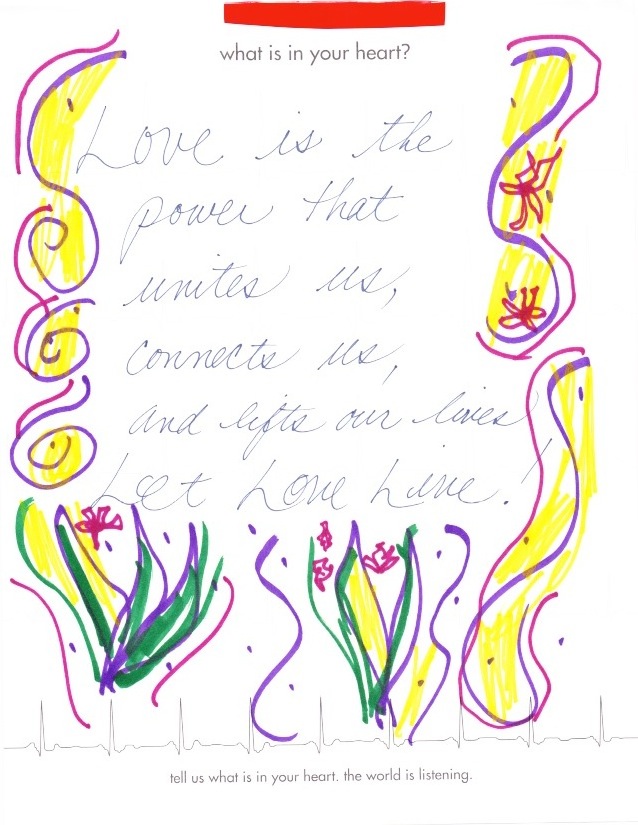 what is in your heart?
Love is the
power that
unites us,
connects us,
and lifts our lives
Let Love Live!
tell us what is in your heart. the world is listening.